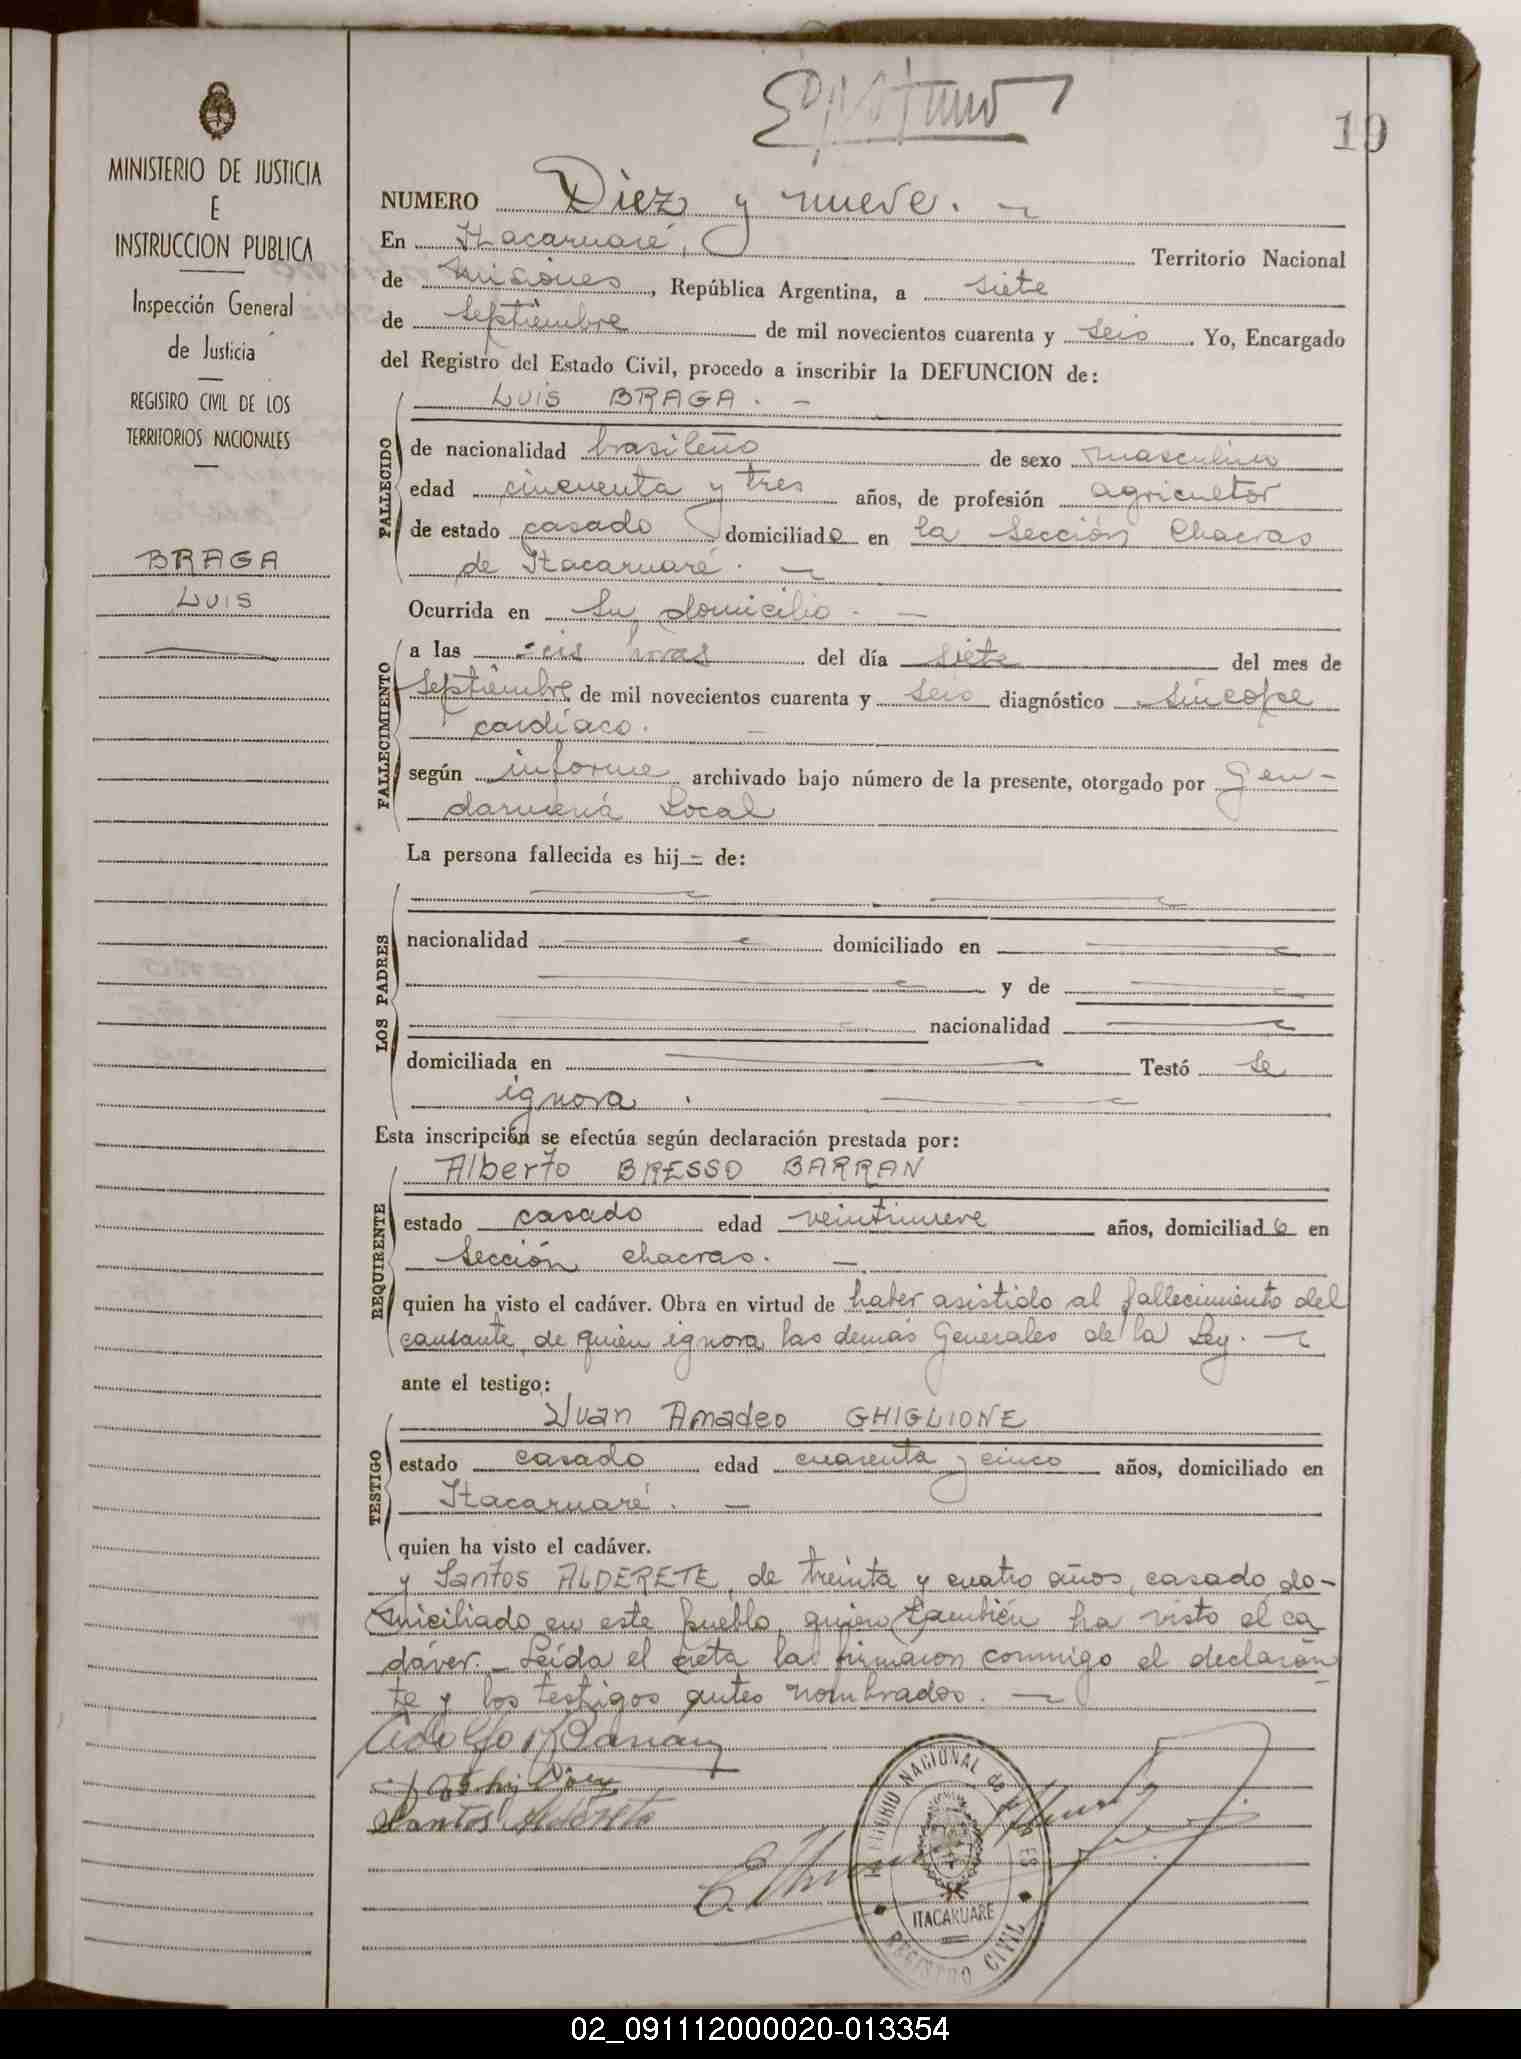 19
MINISTERIO DE JUSTICIA
E
INSTRUCCION PUBLICA
Inspección General
de Justicia
REGISTRO CIVIL DE LOS
TERRITORIOS NACIONALES
BRAGA
LUIS
NUMERO Diez y nueve.
En Itacaruaré, Territorio Nacional
de Misiones, República Argentina, a siete
de Septiembre de mil novecientos cuarenta y seis. Yo, Encargado
del Registro del Estado Civil, procedo a inscribir la DEFUNCION de:
LUIS BRAGA. -
FALLECIDO
de nacionalidad brasileño de sexo masculino
edad cincuenta y tres años, de profesión agricultor
de estado casado domiciliado en la Sección Chacras
de Itacaruaré.
Ocurrida en su domicilio. -
FALLECIMIENTO
a las seis horas del día siete del mes de
Septiembre de mil novecientos cuarenta y seis diagnóstico síncope
cardíaco.
según informe archivado bajo número de la presente, otorgado por Gen-
darmería Local
La persona fallecida es hij= de:
LOS PADRES
nacionalidad domiciliado en
y de
nacionalidad
domiciliada en Testó se
ignora.
Esta inscripción se efectúa según declaración prestada por:
REQUIRENTE
Alberto BRESSO BARRAN
estado casado edad veintinueve años, domiciliado en
Sección chacras. -
quien ha visto el cadáver. Obra en virtud de haber asistido al fallecimiento del
causante, de quien ignora las demás Generales de la Ley.
ante el testigo:
TESTIGO
Juan Amadeo GHIGLIONE
estado casado edad cuarenta y cinco años, domiciliado en
Itacaruaré. -
quien ha visto el cadáver.
y Santos ALDERETE, de treinta y cuatro años, casado do-
miciliado en este pueblo, quien también ha visto el ca
dáver. - Leída el acta la firmaron conmigo el declaran
te y los testigos antes nombrados.
Santos Alderete
REGISTRO CIVIL
ITACARUARE
02_091112000020-013354